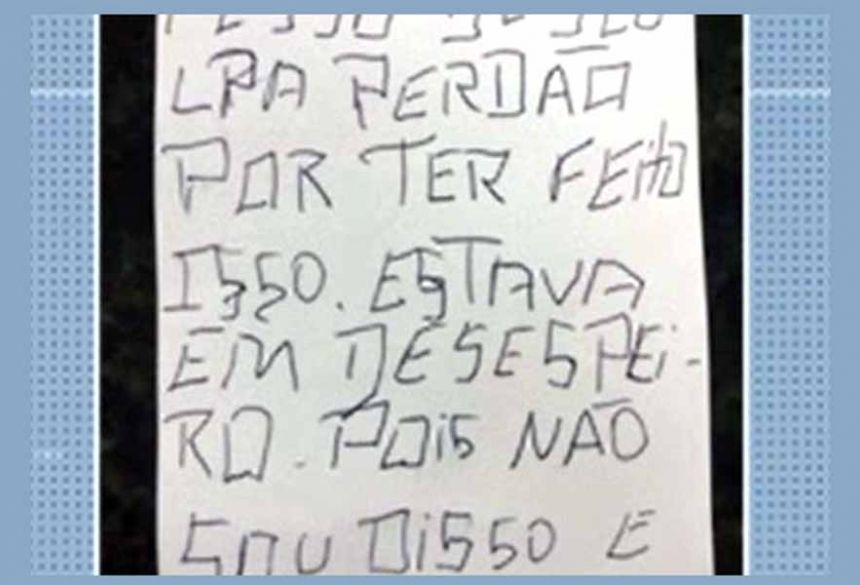 LPA PERDÃO
POR TER FEITO
ISSO. ESTAVA
EM DESESPEI-
RO. POIS NÃO
SOU DISSO E